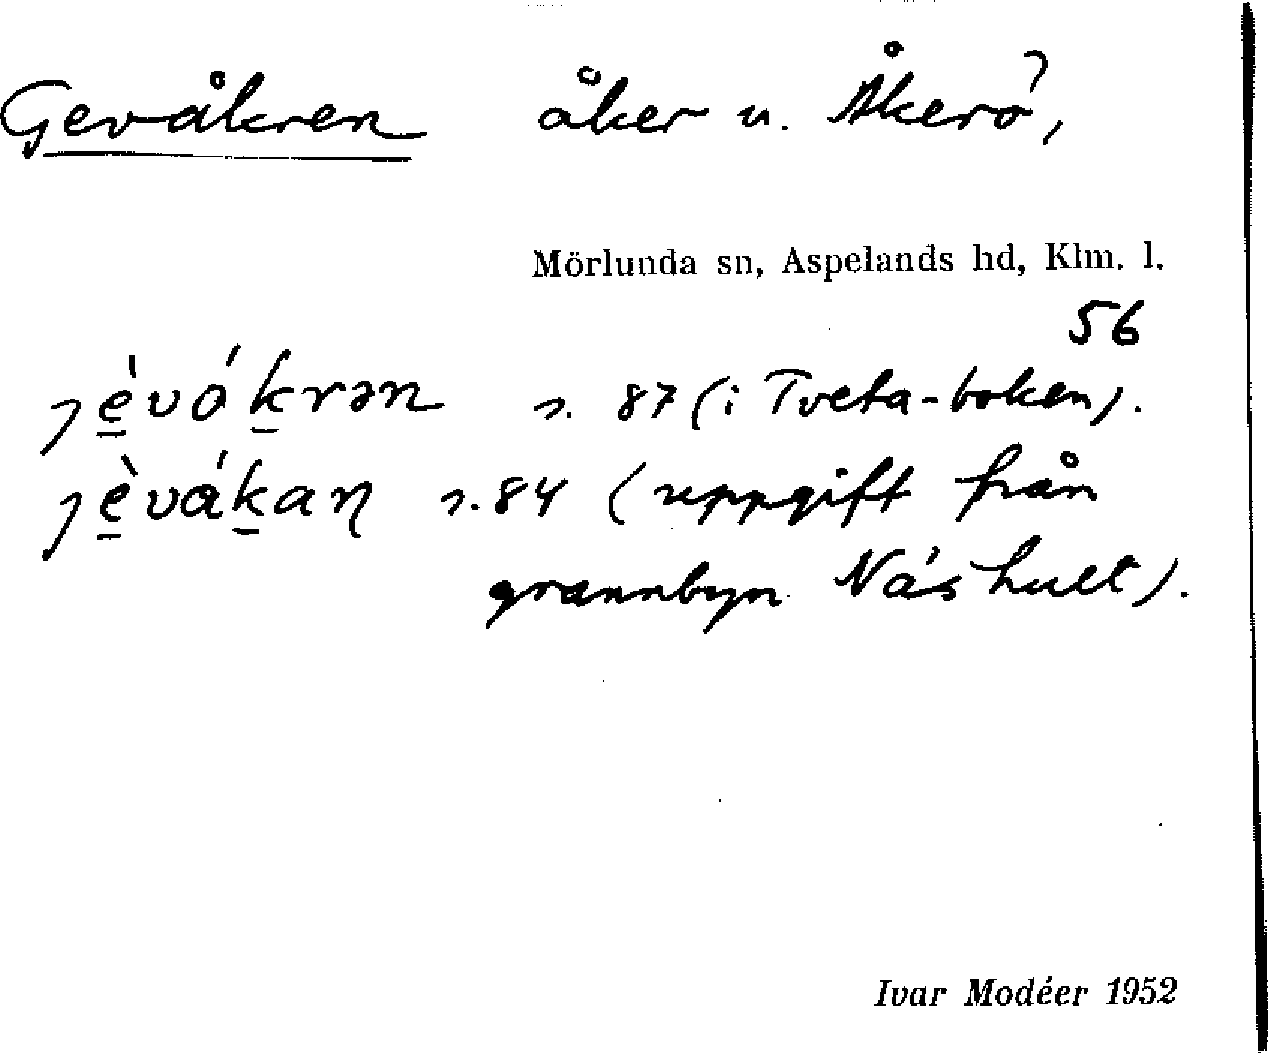 Gevåkren åker u. Åkerö,
Mörlunda sn, Aspelands hd, Klm. l.
56
ȷè̱vókrən s. 87 (i Tveta-boken).
ȷè̱vákaɳ s. 84 (uppgift från
grannbyn Näshult).
Ivar Modéer 1952